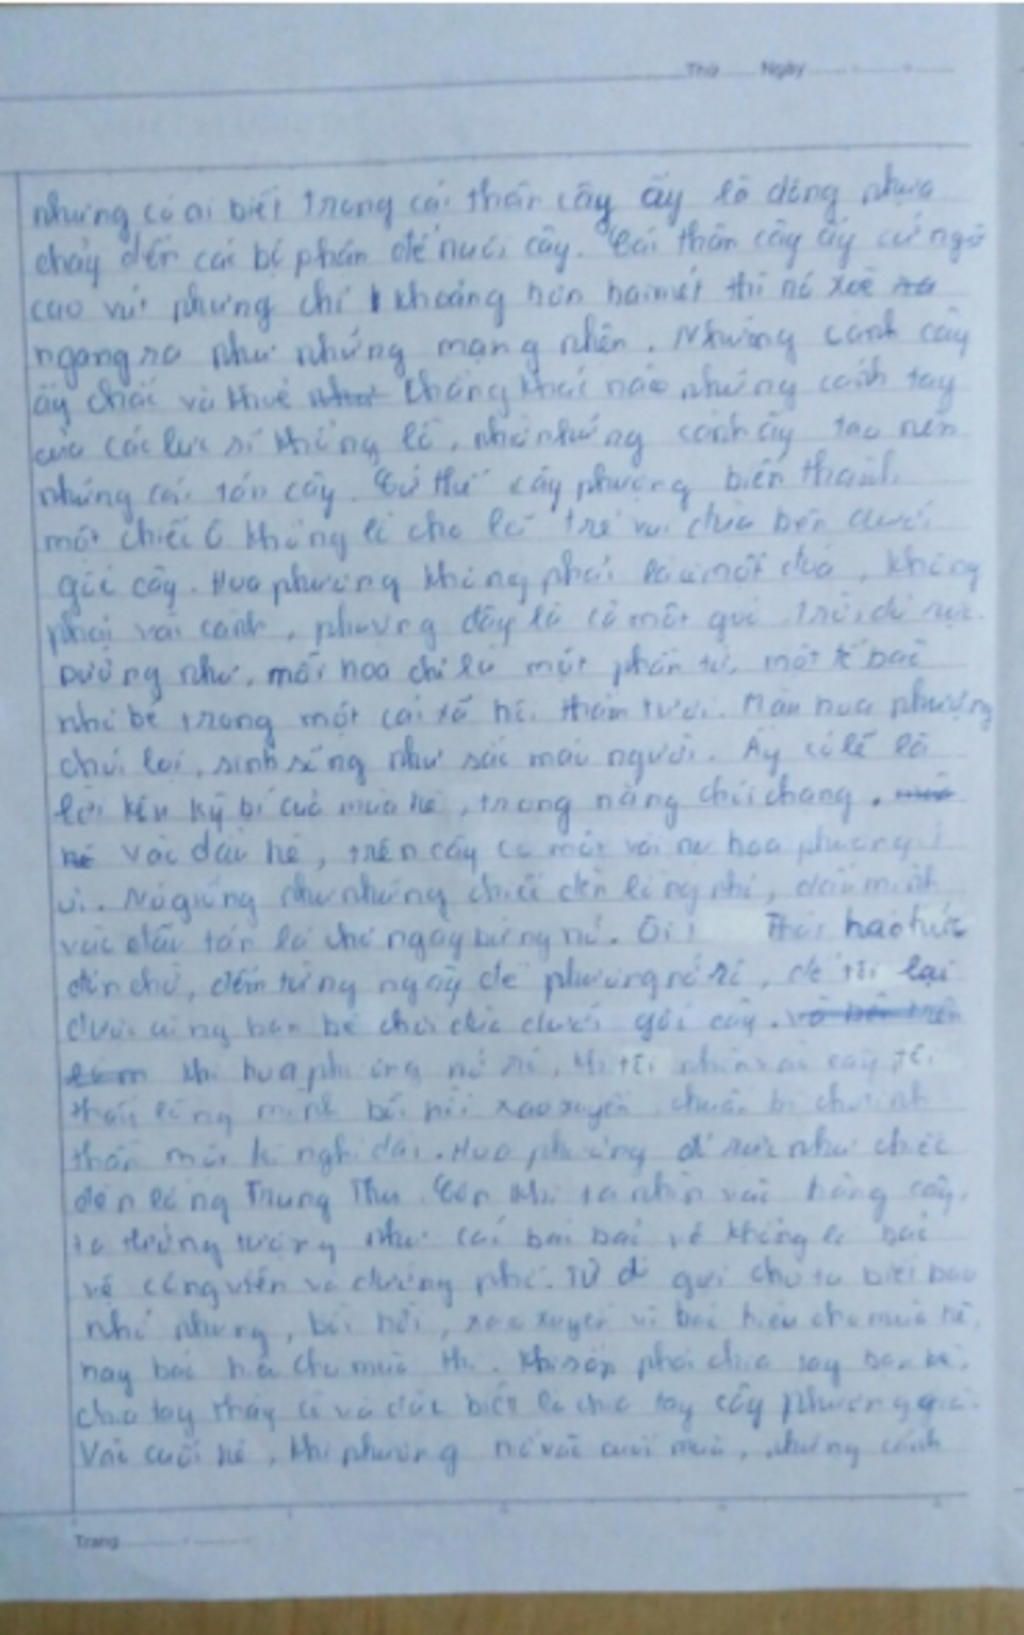 Thứ Ngày
nhưng có ai biết trong cái thân cây ấy là dòng nhựa
chảy đến các bộ phận để nuôi cây. Cái thân cây ấy cứ ngỡ
cao vút nhưng chỉ khoảng hơn hai mét thì nó xoè
ngang ra như những mạng nhện. Những cành cây
ấy chắc và khoẻ chẳng khác nào những cánh tay
của các lực sĩ khổng lồ, nhờ những cành ấy tạo nên
những cái tán cây. Cứ thế cây phượng biến thành
một chiếc ô khổng lồ cho lũ trẻ vui đùa bên dưới
gốc cây. Hoa phượng không phải là một đoá, không
phải vài cành, phượng đây là cả một góc trời đỏ rực.
Dường như, mỗi hoa chỉ là một phần tử, một tế bào
nhỏ bé trong một cái xã hội thắm tươi. Màu hoa phượng
chói lọi, sinh sống như sắc máu người. Ấy có lẽ là
lời kêu kỳ bí của mùa hè, trong nắng chói chang.
Vào đầu hè, trên cây có một vài nụ hoa phượng
Nó giống như những chiếc đèn lồng nhỏ, dấu mình
vào đầu tán lá chờ ngày bừng nở. Ôi! Thật háo hức
đón chờ, đếm từng ngày để phượng nở rộ, để tôi lại
được cùng bạn bè chơi đùa dưới gốc cây.
khi hoa phượng nở rộ, khi tôi nhìn vào cây tôi
thấy lòng mình bồi hồi xao xuyến chuẩn bị cho tinh
thần một kì nghỉ dài. Hoa phượng đỏ rực như chiếc
đèn lồng Trung Thu. Còn khi ta nhìn vào hàng cây,
ta tưởng tượng như cái bảo vệ khổng lồ bảo
vệ công viên và đường phố. Từ đó gợi cho ta biết bao
nhớ nhung, bồi hồi, xao xuyến vì báo hiệu cho mùa hè,
hay báo hiệu cho mùa thi. Khi sắp phải chia tay bạn bè,
chia tay thầy cô và đặc biệt là chia tay cây phượng già.
Vào cuối hè, khi phượng nở vào cuối mùa, những cánh
Trang